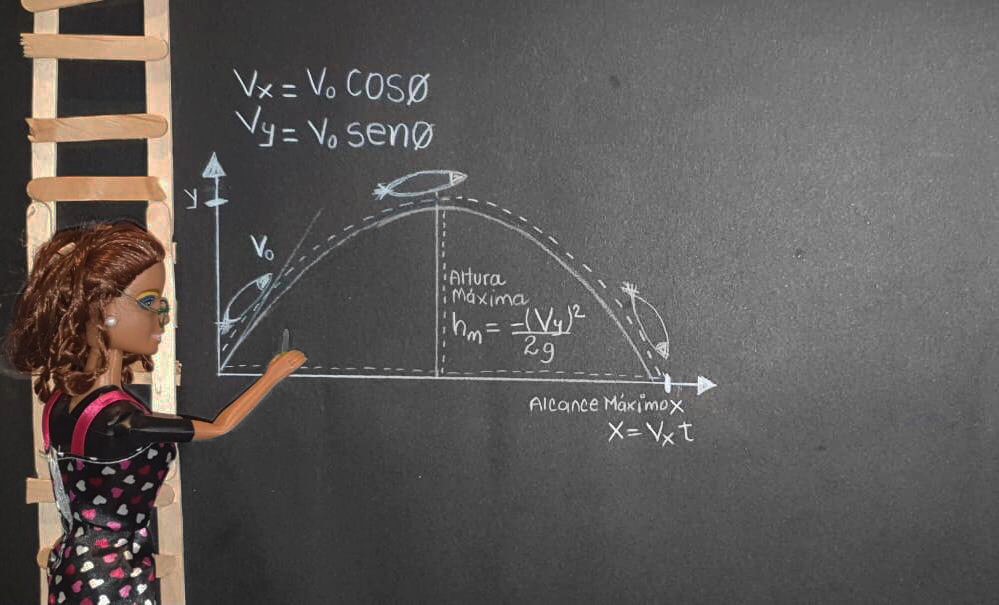 Vx = Vo COSØ
Vy = Vo senØ
y
Vo
Altura
Máxima
hm = -(Vy)²
2g
Alcance Máximo x
X = Vx t